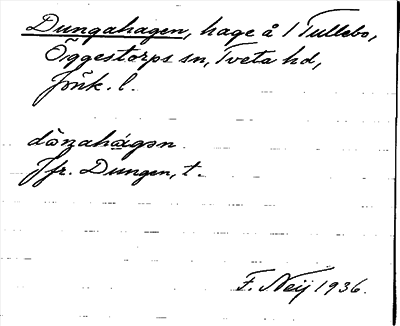 Dungahagen, hage å 1 Tullebo,
Öggestorps sn, Tveta hd,
Jönk. l.
dåŋahågən.
Jfr. Dungen, t.
F. Neij 1936.